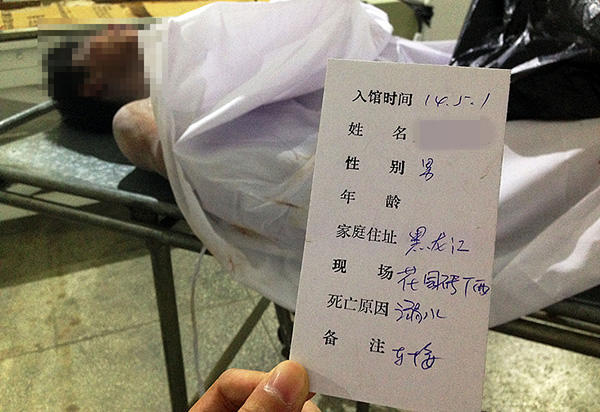 入馆时间 14.5.1
姓 名
性 别 男
年 龄
家庭住址 黑龙江
现 场 花园砖厂西
死亡原因 溺水
备 注